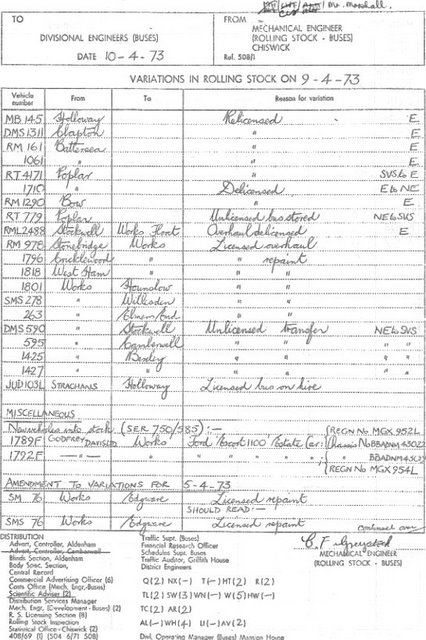 Mr. Marshall.
TO
FROM
DIVISIONAL ENGINEERS (BUSES)
MECHANICAL ENGINEER
(ROLLING STOCK - BUSES)
CHISWICK
DATE 10-4-73
Ref. 508/1
VARIATIONS IN ROLLING STOCK ON 9-4-73
Vehicle number From To Reason for variation
MB 145 Holloway Relicensed E
DMS 1311 Clapton " E
RM 161 Battersea " E
1061 " " E
RT 4171 Poplar " SVS to E
1710 " Delicensed E to NE
RM 1290 Bow " E
RT 779 Poplar Unlicensed bus stored NE to SVS
RML2488 Stockwell Works Float Overhaul delicensed E
RM 978 Stonebridge Works Licensed overhaul
1796 Cricklewood " " repaint
1818 West Ham " " "
1801 Works Hounslow " "
SMS 278 " Willesden " "
263 " Elmers End " "
DMS 590 " Stockwell Unlicensed transfer NE to SVS
595 " Camberwell " " " "
1425 " Bexley " " " "
1427 " " " " " "
JUD 103L STRACHANS Holloway Licensed bus on hire
MISCELLANEOUS
New vehicles into stock (SER 750/585):- (REGN No MGX 952L
1789F GODFREY DAVIS LTD Works Ford Escort 1100 Estate Car: Chassis No BBADNM 43022
1792F —"— " " " " " " BBADNM
(REGN No MGX 954L
AMENDMENT TO VARIATIONS FOR 5-4-73
SM 76 Works Edgware Licensed repaint
SHOULD READ:-
SMS 76 Works Edgware Licensed repaint
continued over
DISTRIBUTION
Advert. Controller, Aldenham
Advert. Controller, Camberwell
Blinds Section, Aldenham
Body Spec. Section,
Central Record
Commercial Advertising Officer (6)
Costs Office (Mech. Engr. Buses)
Scientific Adviser (2)
Distribution Services Manager
Mech. Engr. (Development - Buses) (2)
R. S. Licensing Section (8)
Rolling Stock Inspection
Statistical Office - Chiswick (2)
408/69 (1) (504 6/71 508)
Traffic Supt. (Buses)
Financial Research Officer
Schedules Supt. Buses
Traffic Auditor, Griffith House
District Engineers
Q(2) NX(-) T(-) HT(2) R(2)
TL(2) SW(3) WN(-) W(5) HW(-)
TC(2) AR(2)
AL(-) WH(4) U(-) AV(2)
Divl. Operating Manager (Buses) Mansion House
MECHANICAL ENGINEER
(ROLLING STOCK - BUSES)